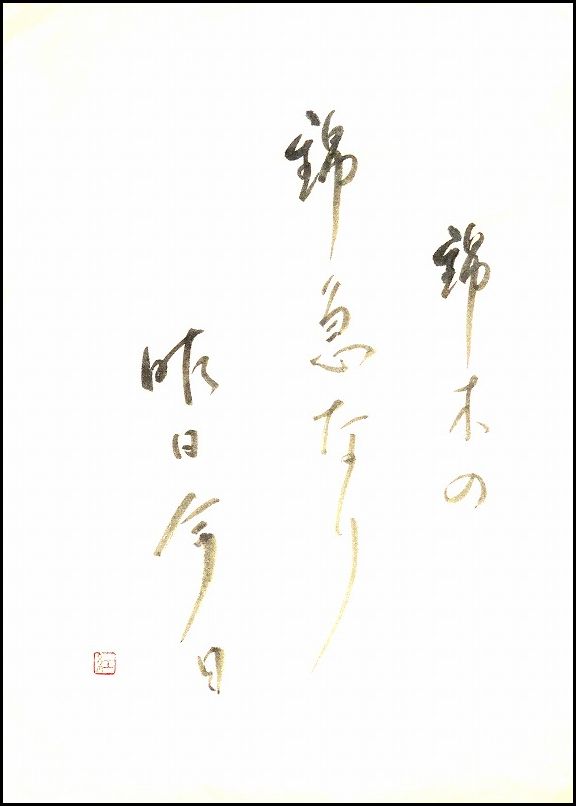 錦木の
錦急なり
昨日今日